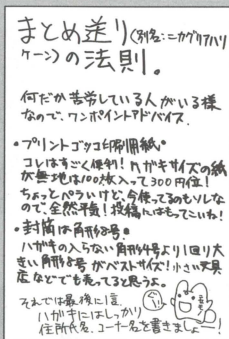 まとめ送り(別名:ニカグリアハリ
ケーン)の法則。
何だか苦労している人がいる様
なので、ワンポイントアドバイス。
・プリントゴッコ印刷用紙・
コレはすごく便利!ハガキサイズの紙
が無地は100枚入って300円位!
ちょっとペラいけど、今使ってるのもソレな
ので、全然平気!投稿にはもってこいね!
・封筒は角形8号・
ハガキの入らない角形4号より1回り大
きい角形8号がベストサイズ!小さい文具
店などでも売ってると思うよ。
それでは最後に1言
ハガキにはしっかり
住所氏名、コーナー名を書きましょー!